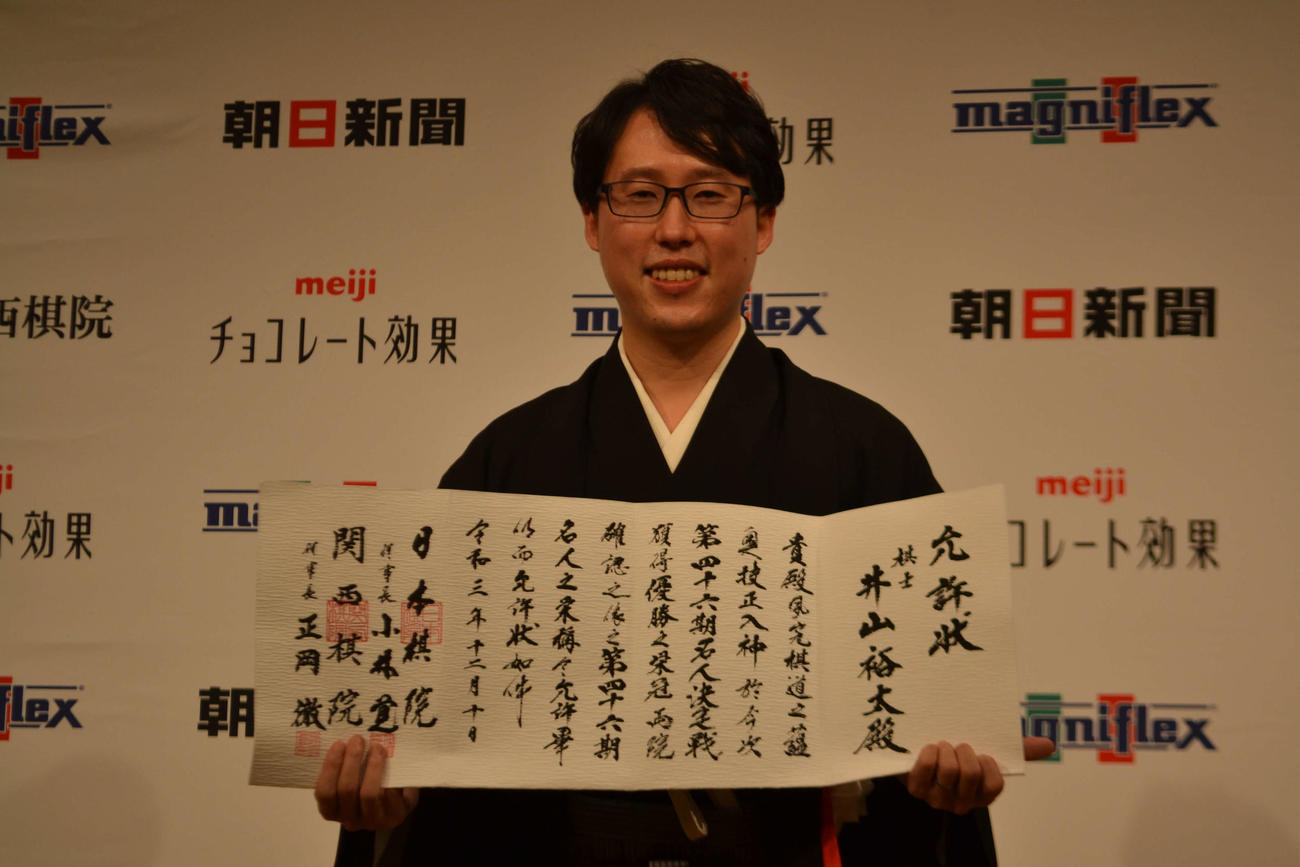 magniflex
朝日新聞
meiji
効果
magniflex
西棋院
meiji
チョコレート効果
magniflex
朝日新聞
meiji
レート効果
meiji
コレート効果
niflex
朝日
magniflex
允許状
棋士
井山裕太殿
貴殿夙究棋道之蘊
奥技正入神 於今次
第四十六期名人決定戦
獲得優勝之栄冠 両院
確認之依之第四十六期
名人之栄称令允許畢
仍而允許状如件
令和三年十二月十日
日本棋院
理事長 小林覚
関西棋院
理事長 正岡徹